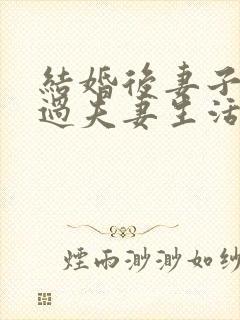 結婚後妻子
過夫妻生活
煙雨渺渺如纱